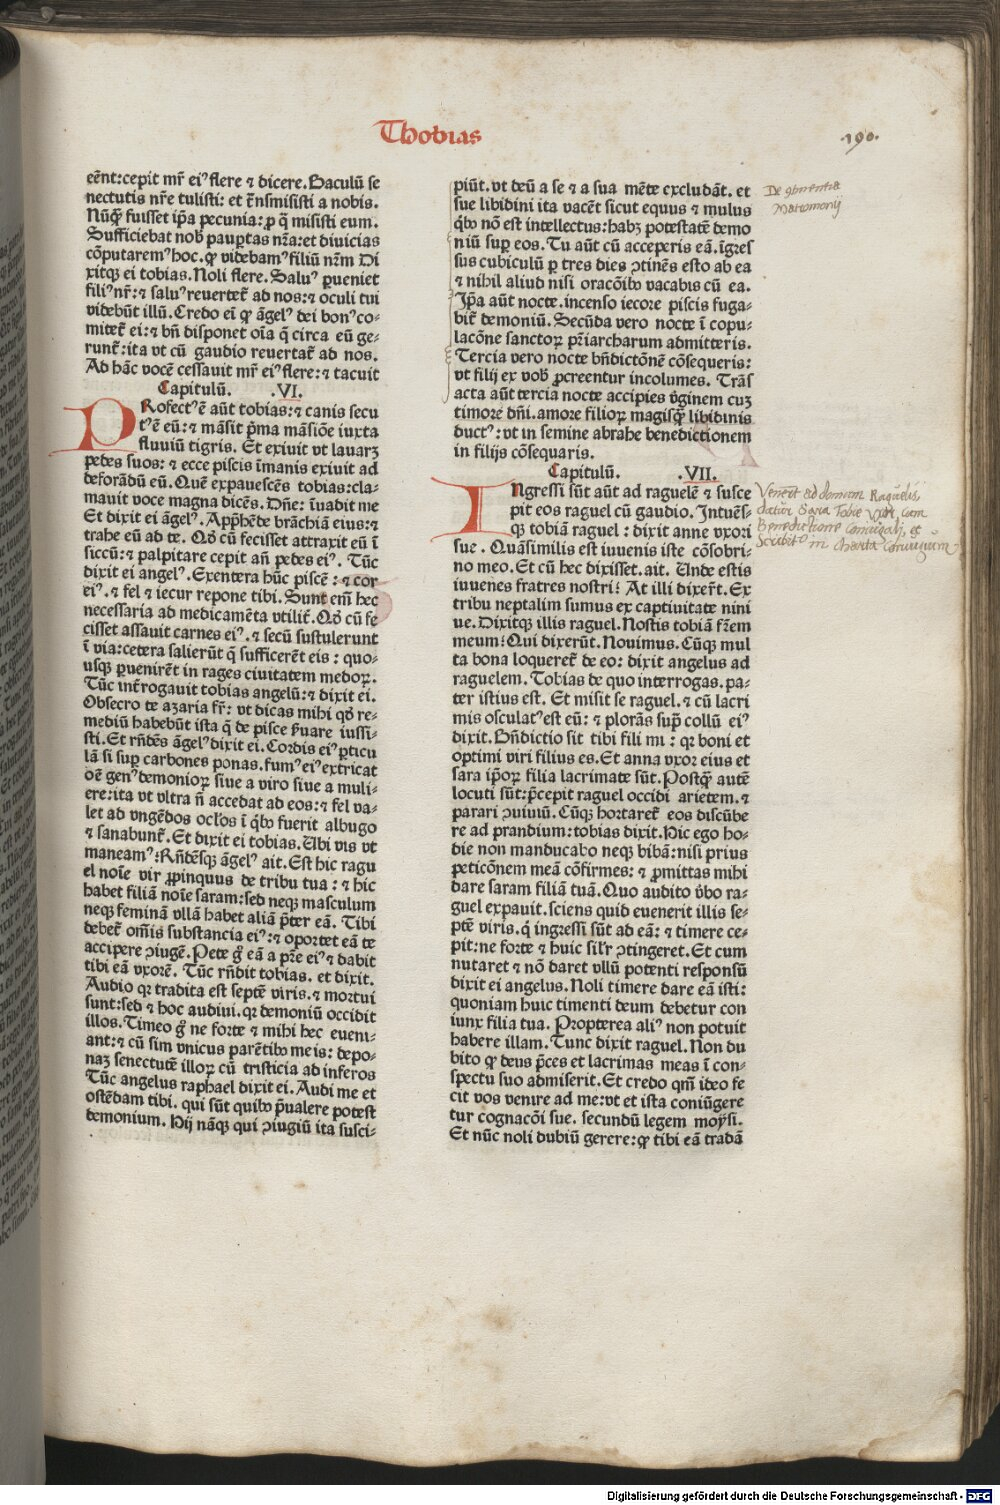 Thobias
.190.
eēnt:cepit mr̄ ei⁹ flere ⁊ dicere. Baculū se
nectutis nr̄e tulisti: et trāsmisisti a nobis.
Nūq̄ fuisset ip̄a pecunia: ꝓ q̄ misisti eum.
Sufficiebat nob̄ paup̱tas nr̄a: et diuicias
cōputarem⁹ hoc. ꝙ videbam⁹ filiū nr̄m Di
xitqꝫ ei tobias. Noli flere. Salu⁹ p̱ueniet
fili⁹ nr̄: ⁊ salu⁹ reuertet̄ ad nos: ⁊ oculi tui
videbūt illū. Credo ei ꝙ āgel⁹ dei bon⁹ co-
mitet̄ ei: ⁊ bn̄ disponet oīa q̄ circa eū ge-
runt̄: ita vt cū gaudio reuertat̄ ad nos.
Ad hāc vocē cessauit mr̄ ei⁹ flere: ⁊ tacuit
Capitulū. .VI.
PRofect⁹ ē aūt tobias: ⁊ canis secu
t⁹ ē eū: ⁊ māsit p̄ma māsiōe iuxta
fluuiū tigris. Et exiuit vt lauarꝫ
pedes suos: ⁊ ecce piscis īmanis exiuit ad
deforādū eū. Quē expauescēs tobias: cla-
mauit voce magna dicēs. Dn̄e: īuadit me
Et dixit ei āgel⁹. App̄hēde brāchiā eius: ⁊
trahe eū ad te. Qd̄ cū fecisset attraxit eū ī
siccū: ⁊ palpitare cepit an̄ pedes ei⁹. Tūc
dixit ei angel⁹. Exentera hūc piscē: ⁊ cor
ei⁹. ⁊ fel ⁊ iecur repone tibi. Sunt em̄ hec
necessaria ad medicamēta vtilit̄. Qd̄ cū fe
cisset assauit carnes ei⁹. ⁊ secū sustulerunt
ī via: cetera salierūt q̄ sufficerēt eis: quo-
usqꝫ p̱uenirēt in rages ciuitatem medoꝝ.
Tūc int̄rogauit tobias angelū: ⁊ dixit ei.
Obsecro te azaria fr̄: vt dicas mihi qd̄ re-
mediū habebūt ista q̄ de pisce s̄uare iussi-
sti. Et rn̄dēs āgel⁹ dixit ei. Cordis ei⁹ p̱ticu
lā si sup̱ carbones ponas. fum⁹ ei⁹ extricat
oē gen⁹ demonioꝝ siue a viro siue a muli-
ere: ita vt vltra n̄ accedat ad eos: ⁊ fel va-
let ad vngēdos ocl̄os ī qb⁹ fuerit albugo
⁊ sanabunt̄. Et dixit ei tobias. Ubi vis vt
maneam⁹: Rn̄dēsqꝫ āgel⁹ ait. Est hic ragu
el noīe vir ꝓpinquus de tribu tua: ⁊ hic
habet filiā noīe saram: sed neqꝫ masculum
neqꝫ feminā vllā habet aliā p̄ter eā. Tibi
debet̄ om̄is substancia ei⁹: ⁊ oportet eā te
accipere ꝯiugē. Pete g̊ eā a pr̄e ei⁹ ⁊ dabit
tibi eā vxorē. Tūc rn̄dit tobias. et dixit.
Audio qꝛ tradita est septē viris. ⁊ mortui
sunt: sed ⁊ hoc audiui. qꝛ demoniū occidit
illos. Timeo g̊ ne forte ⁊ mihi hec eueni-
ant: ⁊ cū sim vnicus parētibꝫ meis: depo-
naꝫ senectutē illoꝝ cū tristicia ad inferos
Tūc angelus raphael dixit ei. Audi me et
ostēdam tibi. qui sūt quibꝫ p̄ualere potest
demonium. Hij nāqꝫ qui ꝯiugiū ita susci-
piūt. vt deū a se ⁊ a sua mēte excludāt. et
sue libidini ita vacēt sicut equus ⁊ mulus
qb⁹ nō est intellectus: habꝫ potestatē demo
niū sup̱ eos. Tu aūt cū acceperis eā. īgres
sus cubiculū p̱ tres dies ꝯtinēs esto ab ea
⁊ nihil aliud nisi oracōibꝫ vacabis cū ea.
Ip̄a aūt nocte. incenso iecore piscis fuga-
bit̄ demoniū. Secūda vero nocte ī copu-
lacōne sanctoꝝ pr̄iarcharum admitteris.
Tercia vero nocte bn̄dictōnē cōsequeris:
vt filij ex vob̄ ꝓcreentur incolumes. Trās
acta aūt tercia nocte accipies v̄ginem cuꝫ
timore dn̄i. amore filioꝝ magisq̄ libidinis
duct⁹: vt in semine abrahe benedictionem
in filijs cōsequaris.
Capitulū. .VII.
INgressi sūt aūt ad raguelē ⁊ susce
pit eos raguel cū gaudio. Intuēs-
qꝫ tobiā raguel: dixit anne vxori
sue. Quāsimilis est iuuenis iste cōsobri-
no meo. Et cū hec dixisset. ait. Unde estis
iuuenes fratres nostri: At illi dixer̄t. Ex
tribu neptalim sumus ex captiuitate nini
ue. Dixitqꝫ illis raguel. Nostis tobiā fr̄em
meum: Qui dixerūt. Nouimus. Cūqꝫ mul
ta bona loqueret̄ de eo: dixit angelus ad
raguelem. Tobias de quo interrogas. pa-
ter istius est. Et misit se raguel. ⁊ cū lacri
mis osculat⁹ est eū: ⁊ plorās sup̄ collū ei⁹
dixit. Bn̄dictio sit tibi fili mi: qꝛ boni et
optimi viri filius es. Et anna vxor eius et
sara ip̄oꝝ filia lacrimate sūt. Postq̄ autē
locuti sūt: p̄cepit raguel occidi arietem. ⁊
parari ꝯuiuiū. Cūqꝫ hortaret̄ eos discūbe
re ad prandium: tobias dixit. Hic ego ho-
die non manducabo neqꝫ bibā: nisi prius
peticōnem meā cōfirmes: ⁊ ꝓmittas mihi
dare saram filiā tuā. Quo audito v̄bo ra-
guel expauit. sciens quid euenerit illis se-
ptē viris. q̄ ingressi sūt ad eā: ⁊ timere ce-
pit: ne forte ⁊ huic sil̄r ꝯtingeret. Et cum
nutaret ⁊ nō daret vllū potenti responsū
dixit ei angelus. Noli timere dare eā isti:
quoniam huic timenti deum debetur con
iunx filia tua. Propterea ali⁹ non potuit
habere illam. Tunc dixit raguel. Non du
bito ꝙ deus p̄ces et lacrimas meas ī con-
spectu suo admiserit. Et credo qm̄ ideo fe
cit vos venire ad me: vt et ista coniūgere
tur cognacōi sue. secundū legem moysi.
Et nūc noli dubiū gerere: ꝙ tibi eā tradā
De ꝯtinentia
Matrimonij
Venerūt ad domum Raguelis
datur Sara Tobie Vxor, cum
Benedictione Coniugali, et
Scribit⁹ in Charta Coniugium
Digitalisierung gefördert durch die Deutsche Forschungsgemeinschaft - DFG